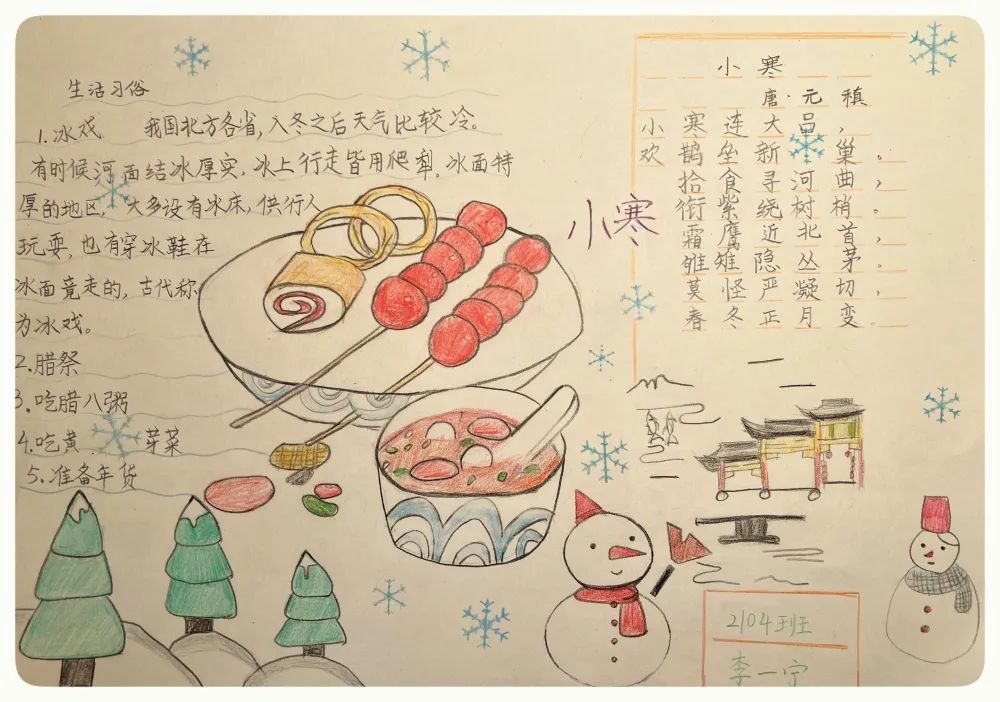 生活习俗
1.冰戏 我国北方各省,入冬之后天气比较冷。
有时候河面结冰厚实,冰上行走皆用爬犁。冰面特
厚的地区,大多设有冰床,供行人
玩耍,也有穿冰鞋在
冰面竟走的,古代称
为冰戏。
2.腊祭
3.吃腊八粥
4.吃黄芽菜
5.准备年货
小寒
小寒
唐·元稹
小寒连大吕,
欢鹊垒新巢。
拾食寻河曲,
衔紫绕树梢。
霜鹰近北首,
雊雉隐丛茅。
莫怪严凝切,
春冬正月变。
2104班
李一宁